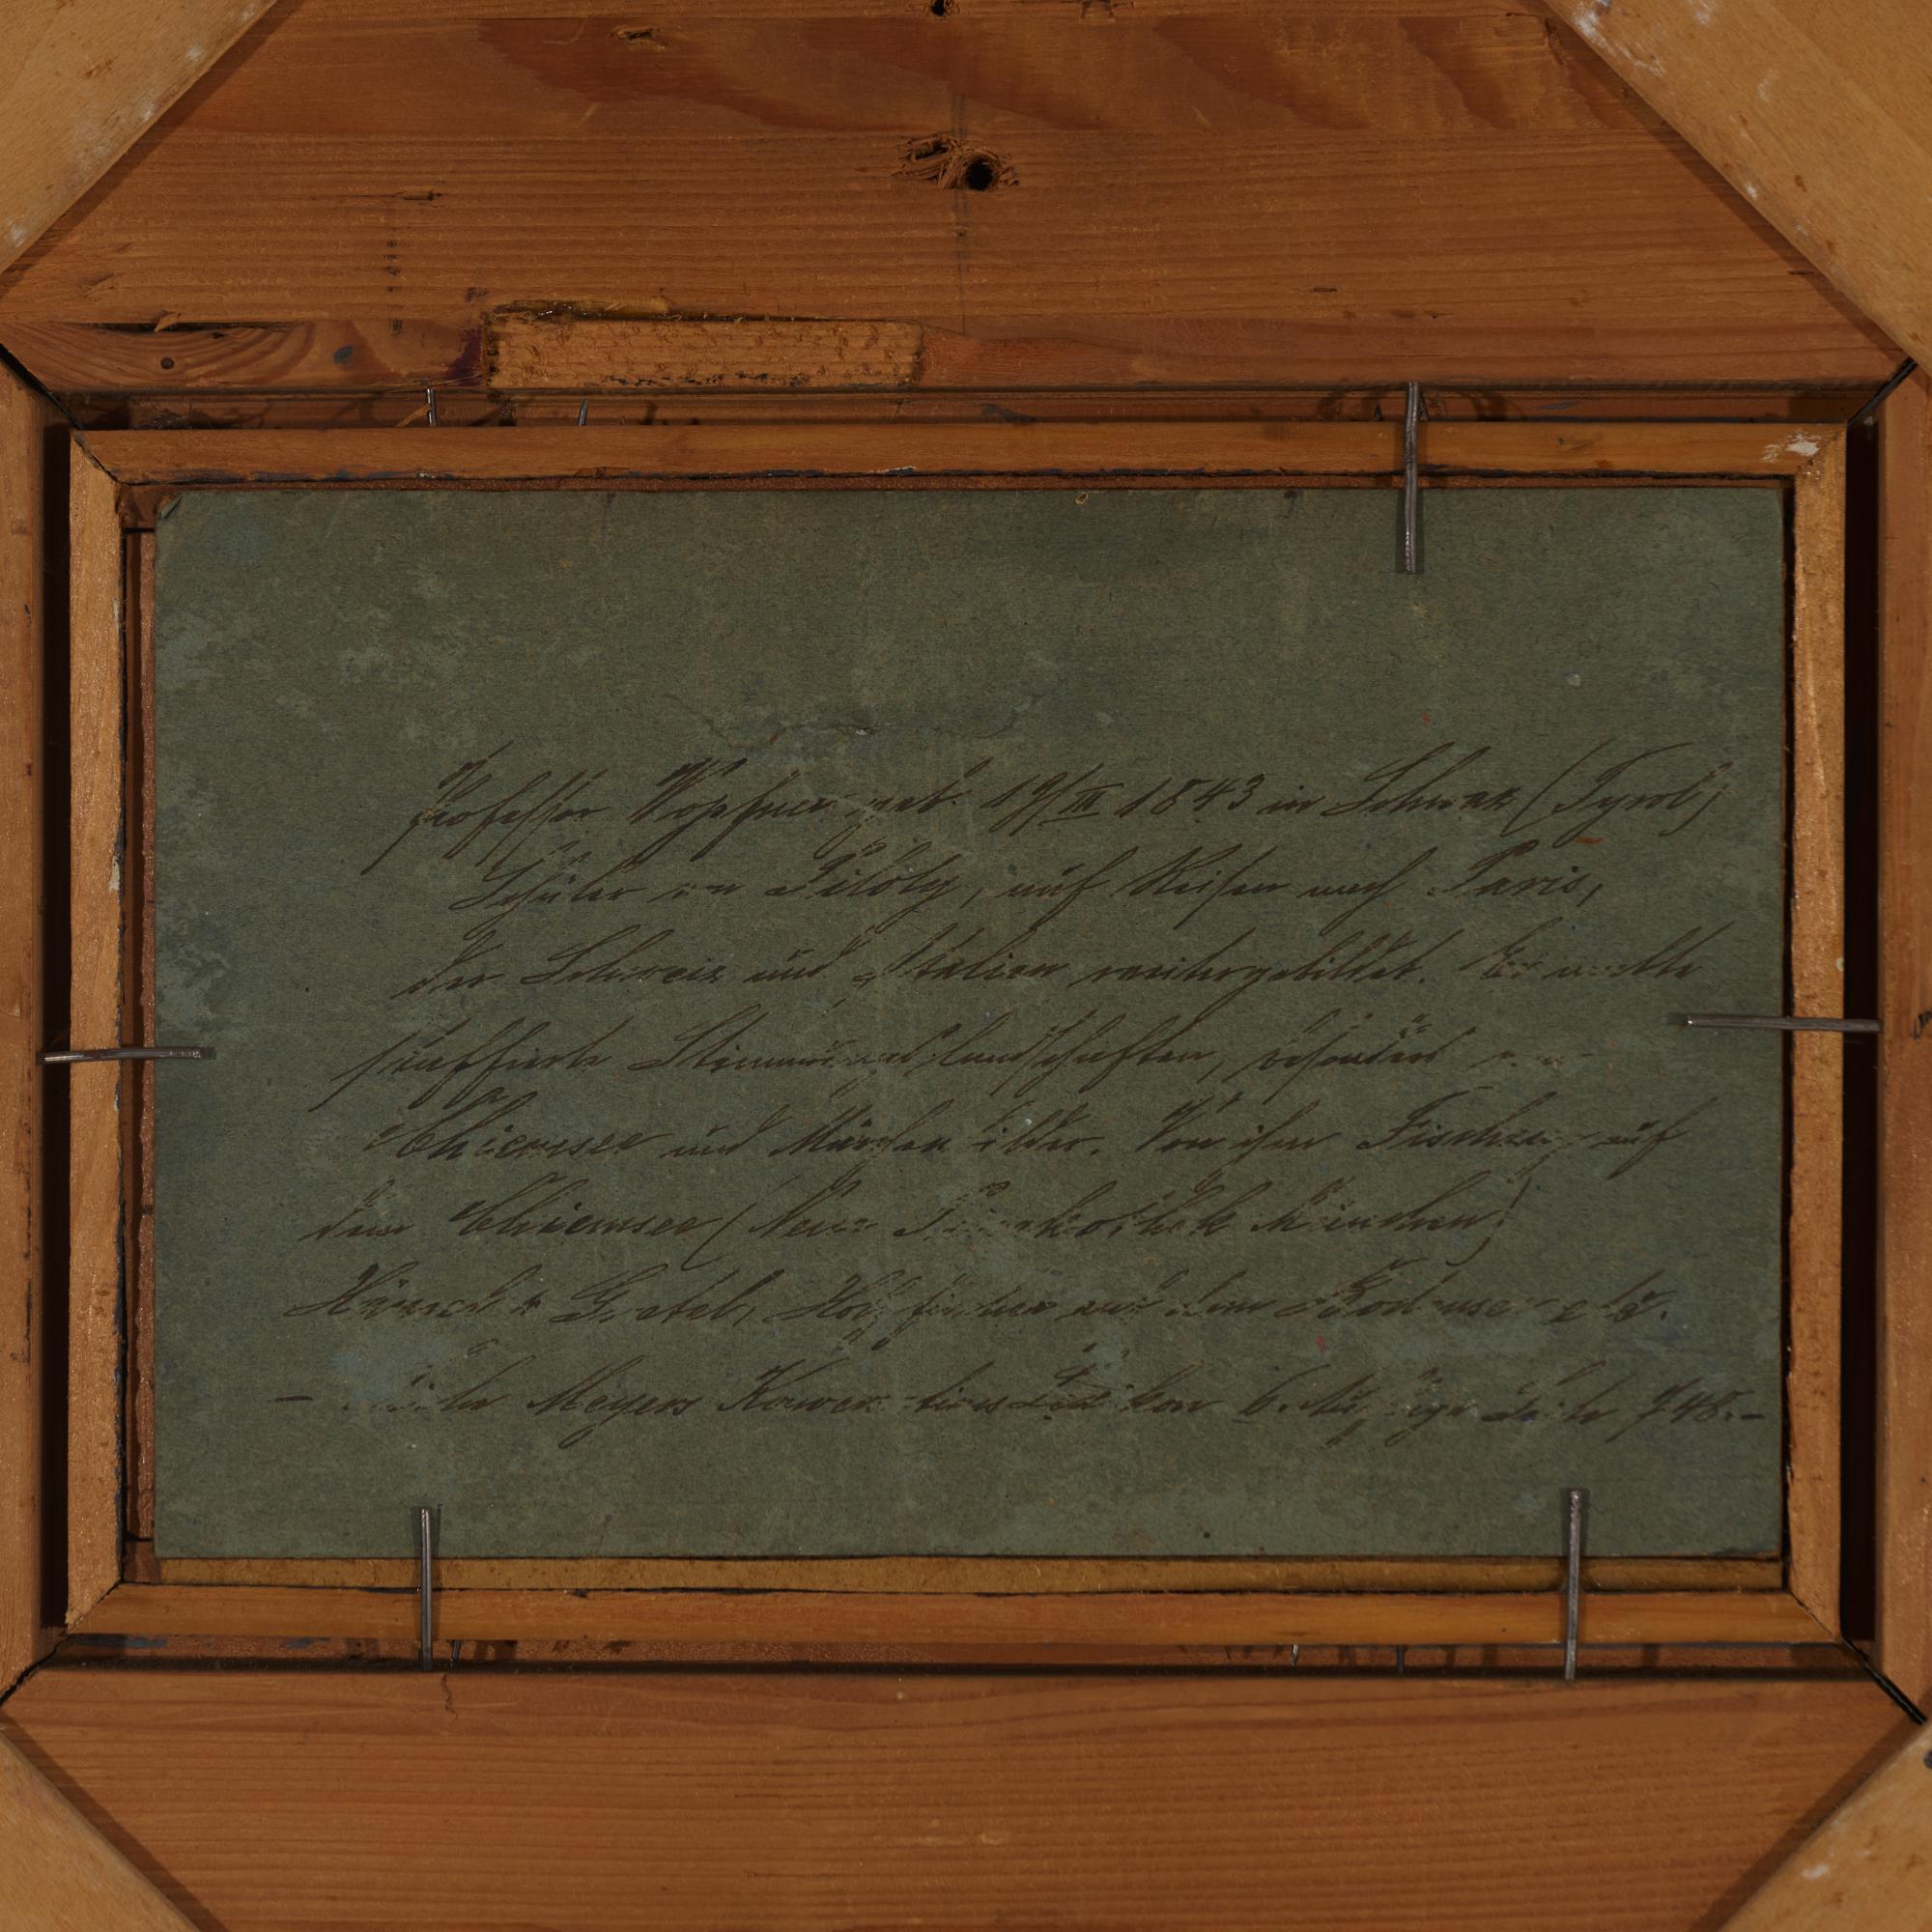 Professor Wopfner geb. 19/III 1843 in Schwaz (Tyrol)
Schüler von Piloty, auf Reisen nach Paris,
der Schweiz und Italien weitergebildet. Er malte
staffierte Stimmungslandschaften, besonders vom
Chiemsee und Märchenbilder. Von ihm Fischzug auf
dem Chiemsee (Neue Pinakothek München)
Hänsel & Gretel, Hochzeiter auf dem Bodensee etc.
– Siehe Meyers Konversations Lexikon 6. Auflage Seite 748. –